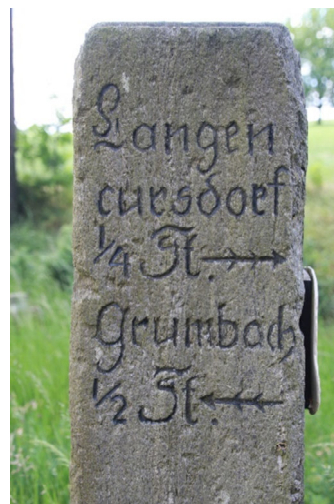 Langen
cursdorf
1/4 St. →
Grumbach
1/2 St. ←